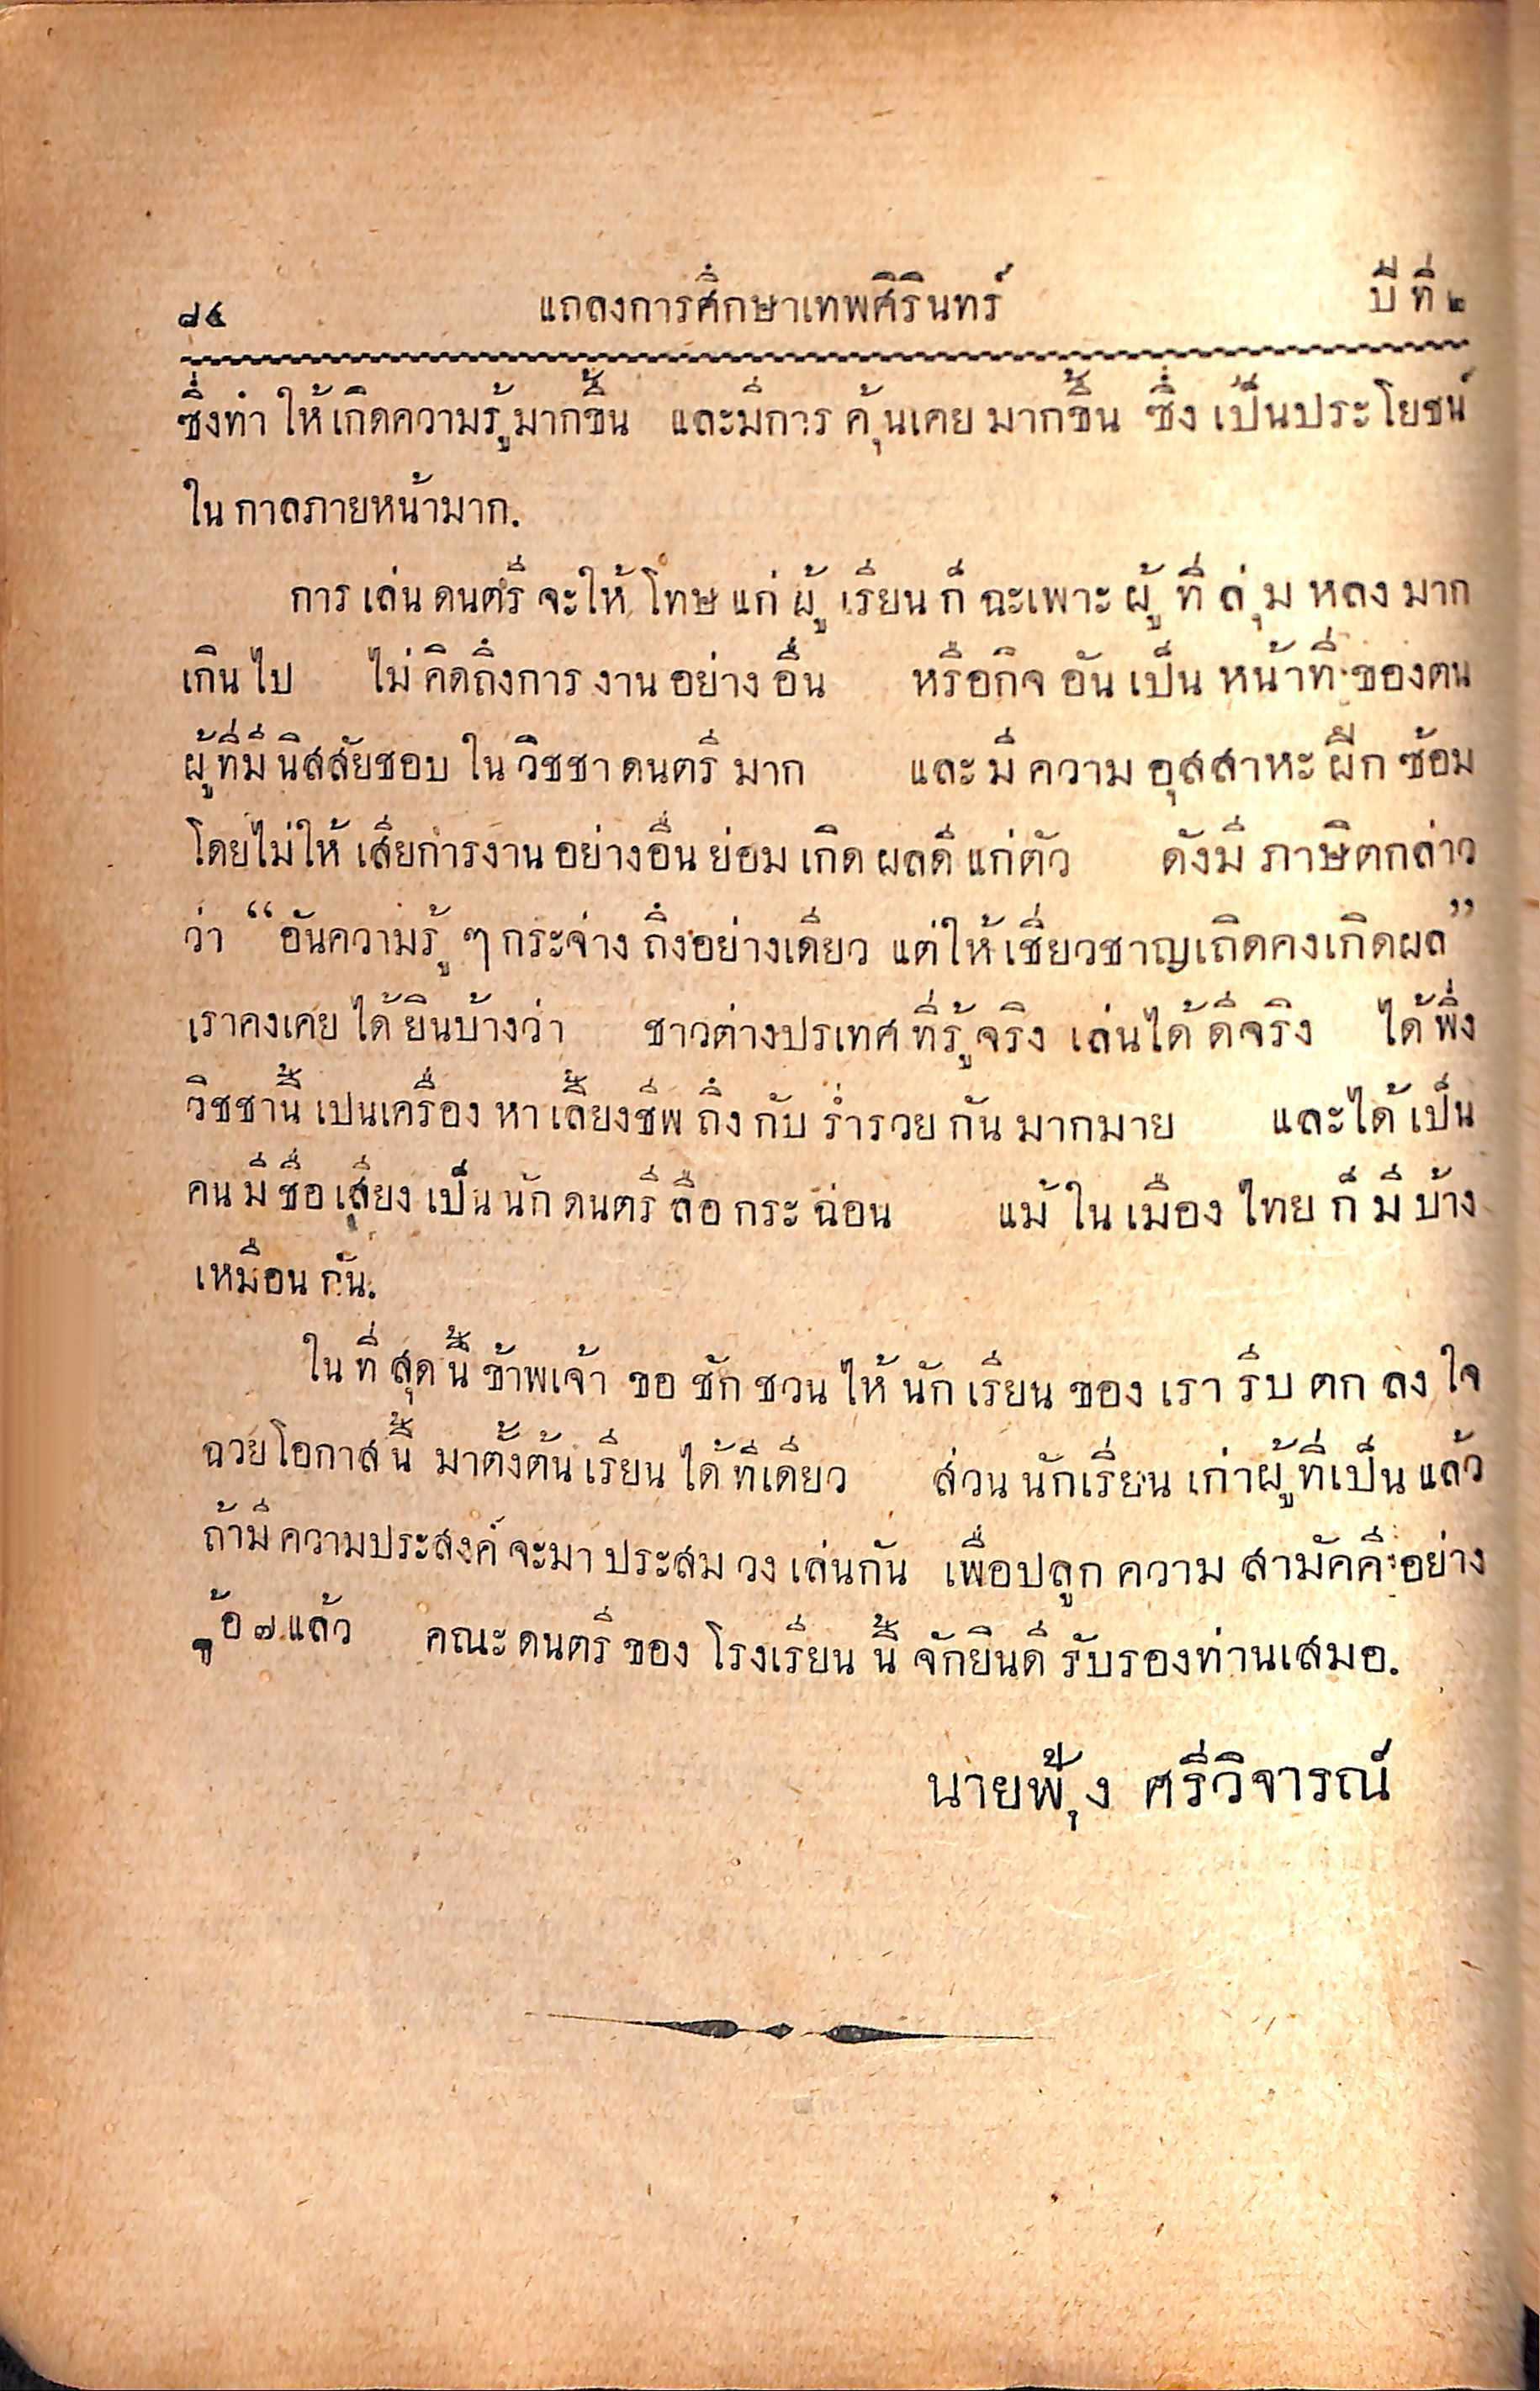 ๘๔ แถลงการศึกษาเทพศิรินทร์ ปีที่ ๒
ซึ่งทำให้เกิดความรู้มากขึ้น และมีการคุ้นเคยมากขึ้น ซึ่งเป็นประโยชน์
ในกาลภายหน้ามาก.
การเล่นดนตรีจะให้โทษแก่ผู้เรียนก็ฉะเพาะผู้ที่ลุ่มหลงมาก
เกินไป ไม่คิดถึงการงานอย่างอื่น หรือกิจอันเป็นหน้าที่ของตน
ผู้ที่มีนิสสัยชอบในวิชชาดนตรีมาก และมีความอุสสาหะฝึกซ้อม
โดยไม่ให้เสียการงานอย่างอื่นย่อมเกิดผลดีแก่ตัว ดังมีภาษิตกล่าว
ว่า “อันความรู้ ๆ กระจ่างถึงอย่างเดียว แต่ให้เชี่ยวชาญเถิดคงเกิดผล”
เราคงเคยได้ยินบ้างว่า ชาวต่างปรเทศที่รู้จริง เล่นได้ดีจริง ได้พึ่ง
วิชชานี้เปนเครื่องหาเลี้ยงชีพถึงกับร่ำรวยกันมากมาย และได้เป็น
คนมีชื่อเสียงเป็นนักดนตรีลือกระฉ่อน แม้ในเมืองไทยก็มีบ้าง
เหมือนกัน.
ในที่สุดนี้ข้าพเจ้า ขอชักชวนให้นักเรียนของเรารีบตกลงใจ
ฉวยโอกาสนี้ มาตั้งต้นเรียนได้ทีเดียว ส่วนนักเรียนเก่าผู้ที่เป็นแล้ว
ถ้ามีความประสงค์จะมาประสมวงเล่นกัน เพื่อปลูกความสามัคคีอย่าง
แล้ว คณะดนตรีของโรงเรียนนี้จักยินดีรับรองท่านเสมอ.
นายฟุ้ง ศรีวิจารณ์